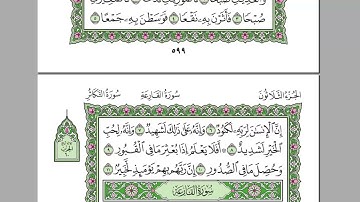 فَأَثَرْنَ بِهِۦ نَقْعًا ٤ فَوَسَطْنَ بِهِۦ جَمْعًا ٥
٥٩٩
الجزء الثلاثون سورة القارعة سورة التكاثر
إِنَّ ٱلْإِنسَٰنَ لِرَبِّهِۦ لَكَنُودٌ ٦ وَإِنَّهُۥ عَلَىٰ ذَٰلِكَ لَشَهِيدٌ ٧ وَإِنَّهُۥ لِحُبِّ
ٱلْخَيْرِ لَشَدِيدٌ ٨ أَفَلَا يَعْلَمُ إِذَا بُعْثِرَ مَا فِى ٱلْقُبُورِ ٩
وَحُصِّلَ مَا فِى ٱلصُّدُورِ ١٠ إِنَّ رَبَّهُم بِهِمْ يَوْمَئِذٍ لَّخَبِيرٌۢ ١١
سورة القارعة